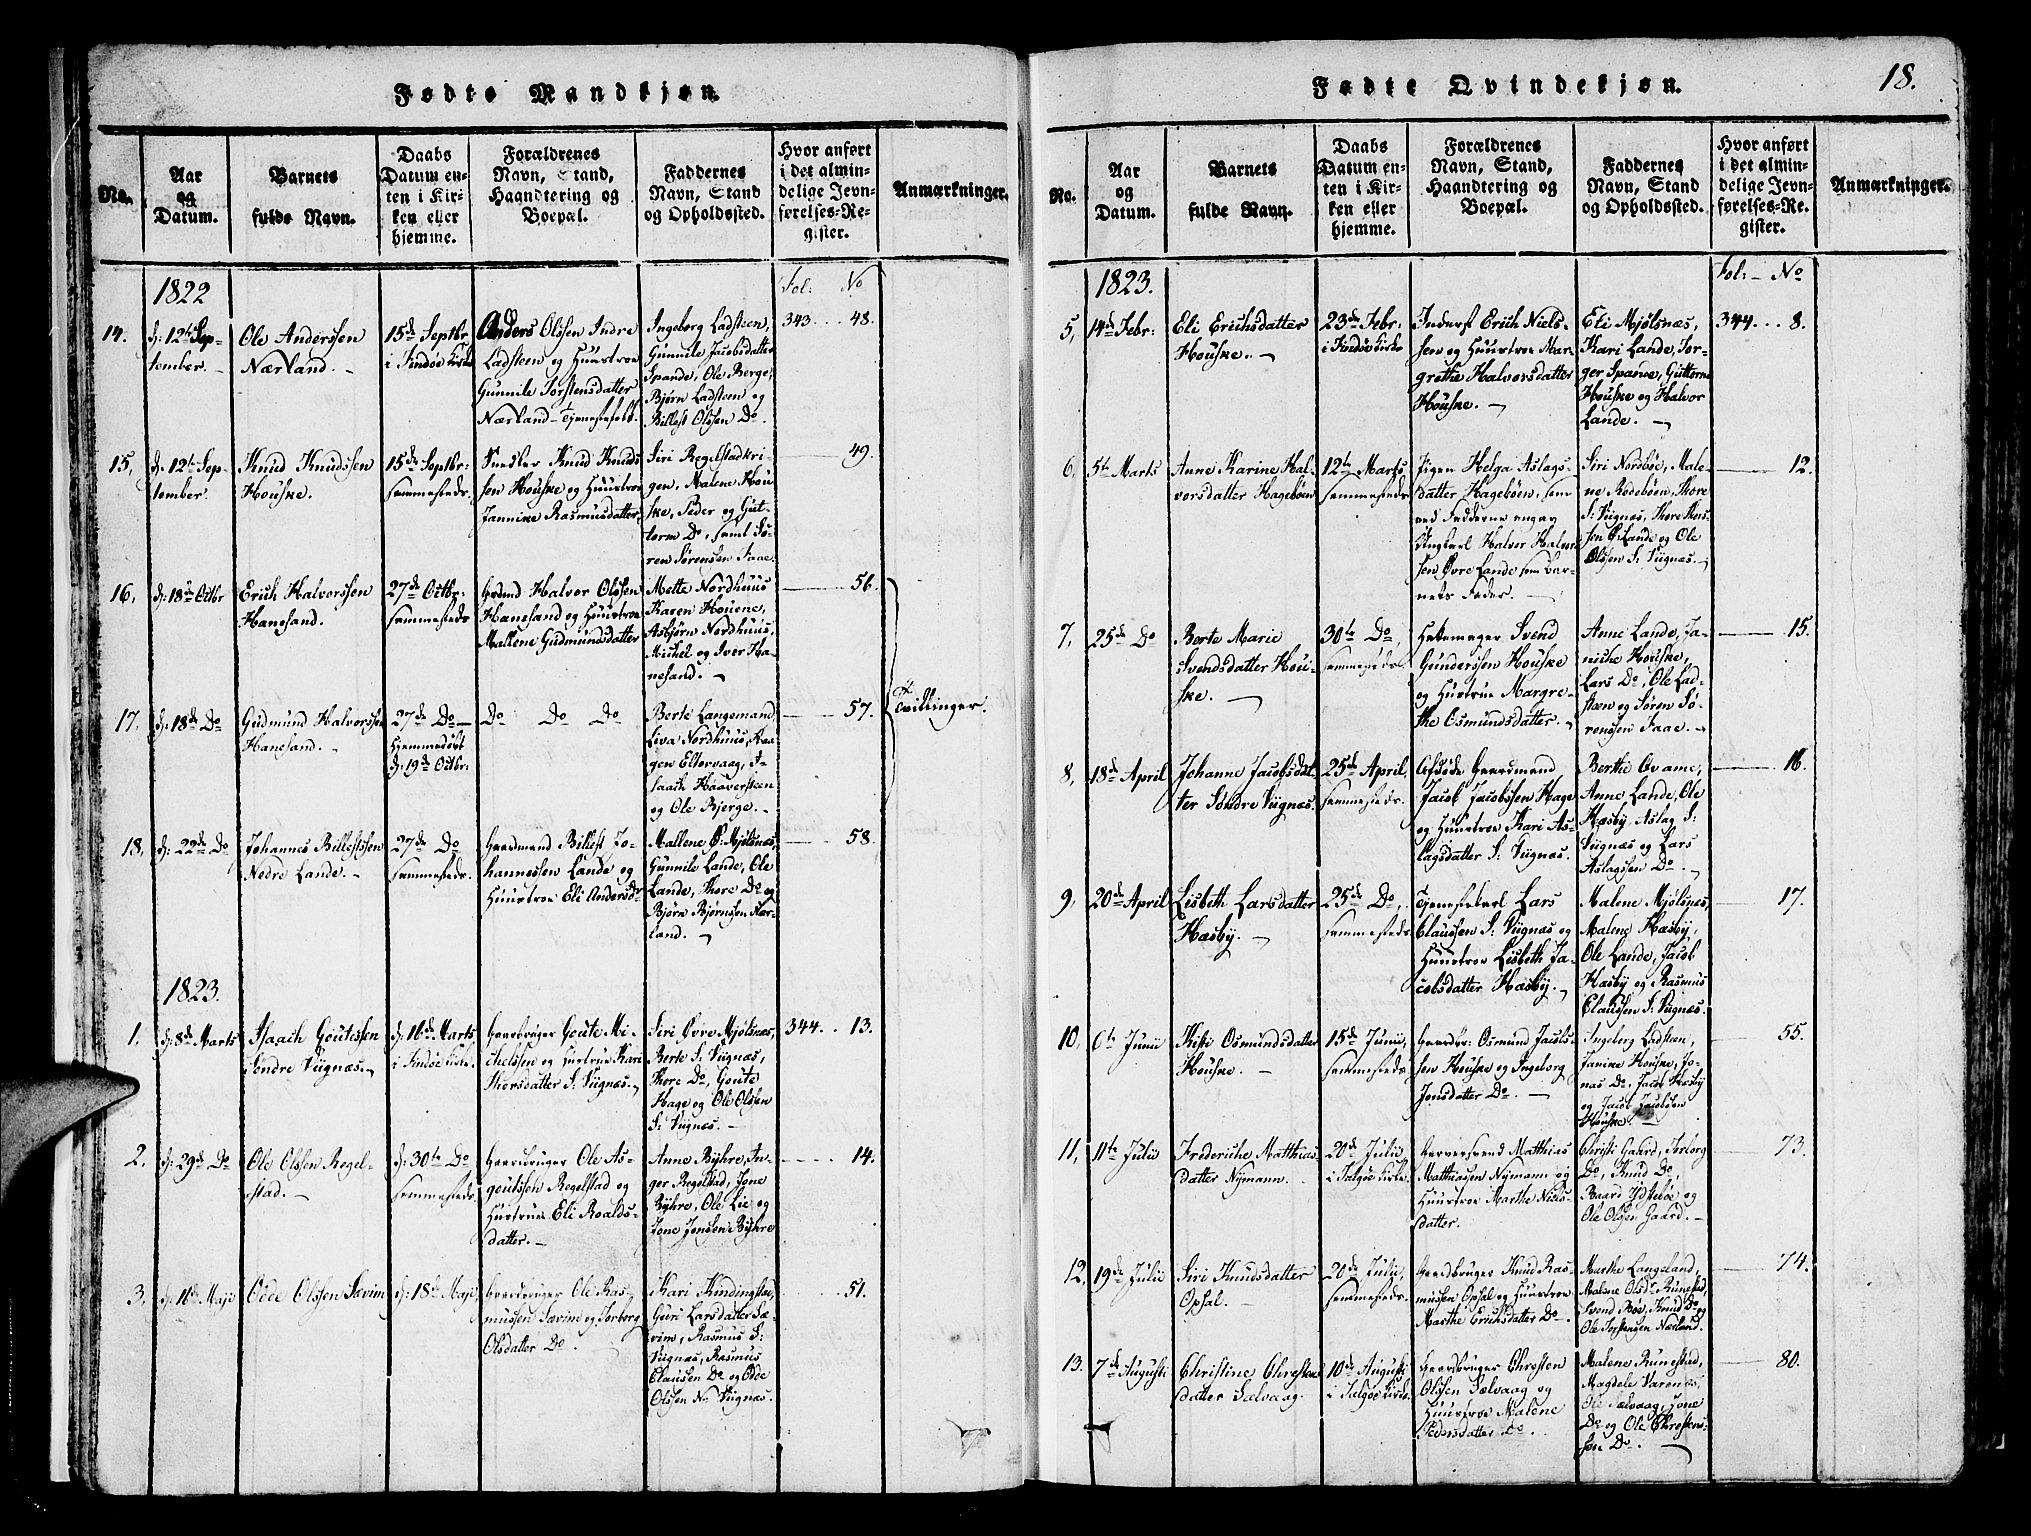 Fødte Mandkjøn.
No.
Aar
og
Datum.
Barnets
fulde Navn.
Daabs
Datum en-
ten i Kir-
ken eller
hjemme.
Forældrenes
Navn, Stand,
Haandtering og
Boepæl.
Faddernes
Navn, Stand
og Opholdssted.
Hvor anført
i det almin-
delige Jevn-
førelses-Re-
gister.
Anmærkninger.
1822
Fol: No
14.
d: 12te Sep-
tember.
Ole Anderssen
Nærland.
15de Septbr
i Findöe Kirke
Anders Olssen Indre
Ladsteen og Huustroe
Gunnile Torstensdatter
Nærland - Tjenestefolk.
Ingeborg Ladsteen,
Gunnile Jacobsdatter
Spande, Ole Berge,
Bjørn Ladsteen og
Billest Olssen Do.
343 48.
15,
d: 12te Sep-
tember.
Knud Knudssen
Houske.
15de Septbr:
sammesteds.
Knud Knuds
sen Houske og Huustroe
Jannike Rasmusdatter,
Siri Regelstadkri-
gen, Malene Hou
ske, Peder og Gut-
torm Do, samt Sö-
ren Sörensen Faae
49.
16,
d: 18de Octbr
Erich Halvorssen
Hanesand.
27de Octbr:
sammesteds
Halvor Olssen
Hanesand og Huustroe
Mallene Gudmundsdatter
Mette Nordhuus
Karen Houene,
Asbjørn Nordhuus,
Michel og Iver Ha-
nesand.
56.
17,
d: 18de Do
Gudmund Halvorssen
Hanesand.
27de Do
Hjemmedøbt
d: 19de Octbr:
Do Do Do
Berte Langemand
Liva Nordhuus, Aa-
gen Eltervaag, I-
saach Haaversteen
og Ole Bjerge.
57.
Tvillinger.
18,
d: 22de Do
Johannes Billestssen
Nedre Lande.
27de Do
sammesteds.
Gaardmand Billest Jo-
hannessen Lande og
Huustroe Eli Andersdr
Mallene Ø: Mjølsnæs,
Gunnile Lande, Ole
Lande, Thore Do og
Bjørn Bjørnsen Nær-
land.
58.
1823.
1.
d: 8de Marts
Isaach Goutessen
Söndre Viignæs.
d: 16de Marts
i Findöe Kirke.
Gaardbruger Goute Mi-
chelssen og Hustrue Kari
Thorsdatter S: Viignæs.
Siri Øvre Mjølsnæs,
Berte S: Viignæs,
Thore Do, Goute
Hage og Ole Olssen
S: Viignæs.
344. 13.
2.
d: 29de Do
Ole Olssen Regel-
stad.
d: 30te Do
sammesteds.
Gaardbruger Ole As-
goutssen Regelstad og
Hustrue Eli Roalds-
datter.
Anne Byhre, In-
ger Regelstad, Jone
Byhre, Ole Lie og
Jone Jonssen Byhre
14.
3.
d: 16de Maji
Odde Olssen Sævim
d: 18de Maji
Gaardbruger Ole Ras-
mussen Sævim og Torborg
Olsdatter Do.
Kari Kindingstad,
Guri Larsdatter Sæ-
vim, Rasmus S:
Viignæs, Rasmus
Clausen Do og Odde
Olssen N: Viignæs.
51.
Fødte Qvindekjøn.
18.
No.
Aar
og
Datum.
Barnets
fulde Navn.
Daabs
Datum en-
ten i Kir-
ken eller
hjemme.
Forældrenes
Navn, Stand,
Haandtering og
Boepæl.
Faddernes
Navn, Stand
og Opholdssted.
Hvor anført
i det almin-
delige Jevn-
førelses-Re-
gister.
Anmærkninger.
1823.
Fol: - No
5,
14de Febr:
Eli Erichsdatter
Houske.
23de Febr:
i Findöe Kirke
Inderst Erich Niels-
sen og Huustroe Mar-
grethe Halvorsdatter
Houske.
Eli Mjølsnæs,
Kari Lande, Tor-
ger Spanne, Guttorm
Houske og Halvor
Lande.
344. 8.
6,
5te Marts
Anne Karine Hal-
vorsdatter Hagebøen
12te Marts
sammesteds
Pigen Helga Aslags-
datter Hagebøen, som
ved Fadderne angav
Ungkarl Halvor Halvor-
sen Øvre Lande som bar-
nets Fader.
Siri Nordbøe, Male-
ne Rødebøen, Thore
S: Viignæs, Thore Thors-
sen Ø: Lande og Ole
Olssen S: Viignæs.
12.
7,
25de Do
Berte Marie
Svendsdatter Hou-
ske.
30te Do
sammesteds.
Svend
Gunderssen Houske
og Hustrue Margre-
the Osmundsdatter.
Anne Lande, Ja-
niche Houske,
Lars Do, Ole Lad-
stæn og Søren Sö-
renssen Faae.
15.
8,
18de April
Johanne Jacobsdat-
ter Søndre Viignæs.
25de April,
sammesteds.
Afdøde Gaardmand
Jacob Jacobssen Hage
og Huustroe Kari As-
lagsdatter S: Viignæs.
Berthe Qvame,
Anne Lande, Ole
Hæsby, Aslag S:
Viignæs og Lars
Aslagssen Do.
16.
9,
20de April
Lisbeth Larsdatter
Hæsby.
25de Do,
sammesteds.
Tjenestekarl Lars
Claussen S: Viignæs og
Huustroe Lisbeth Ja-
cobsdatter Hæsby.
Malene Mjølsnæs,
Malene Hæsby,
Ole Lande, Jacob
Hæsby og Rasmus
Claussen S: Viignæs.
17.
10,
6te Junii
Kisti Osmundsdatter
Houske.
15de Junii,
sammesteds.
Gaardbr: Osmund Jacobs-
sen Houske og Ingeborg
Jonsdatter Do.
Ingeborg Ladsteen,
Janike Houske, Jo-
nas Do, Jacob Hæsby
og Jacob Jacobssen
Houske.
55.
11,
11te Julii
Frederiche Matthias-
datter Nymann.
20de Julii,
i Talgöe Kirke.
Matthias
Matthiassen Nymann og
Huustroe Marthe Niels-
datter.
Christi Gaard, Torborg
Do, Knud Do,
Baard Ydstebøe og
Ole Olssen Gaard.
73.
12,
19de Julii
Siri Knudsdatter
Opsal.
20de Julii,
sammesteds.
Gaardbruger Knud Ras-
mussen Opsal og Huustroe
Marthe Erichsdatter Do.
Marthe Langeland,
Malene Olsdr Runestad,
Svend Bøe, Knud Do og
Ole Torstensen Nærland.
74.
13.
7de Augusti
Christine Chrestens
datter Salvaag.
10de Augusti
i Talgöe Kirke.
Gaardbruger Chresten
Olssen Sælvaag og
Huustroe Malene
Pedersdatter Do.
Malene Runestad,
Magdele Varenæs,
Ole Sælvaag, Jone
Do og Ole Chrestens-
sen Do.
80.